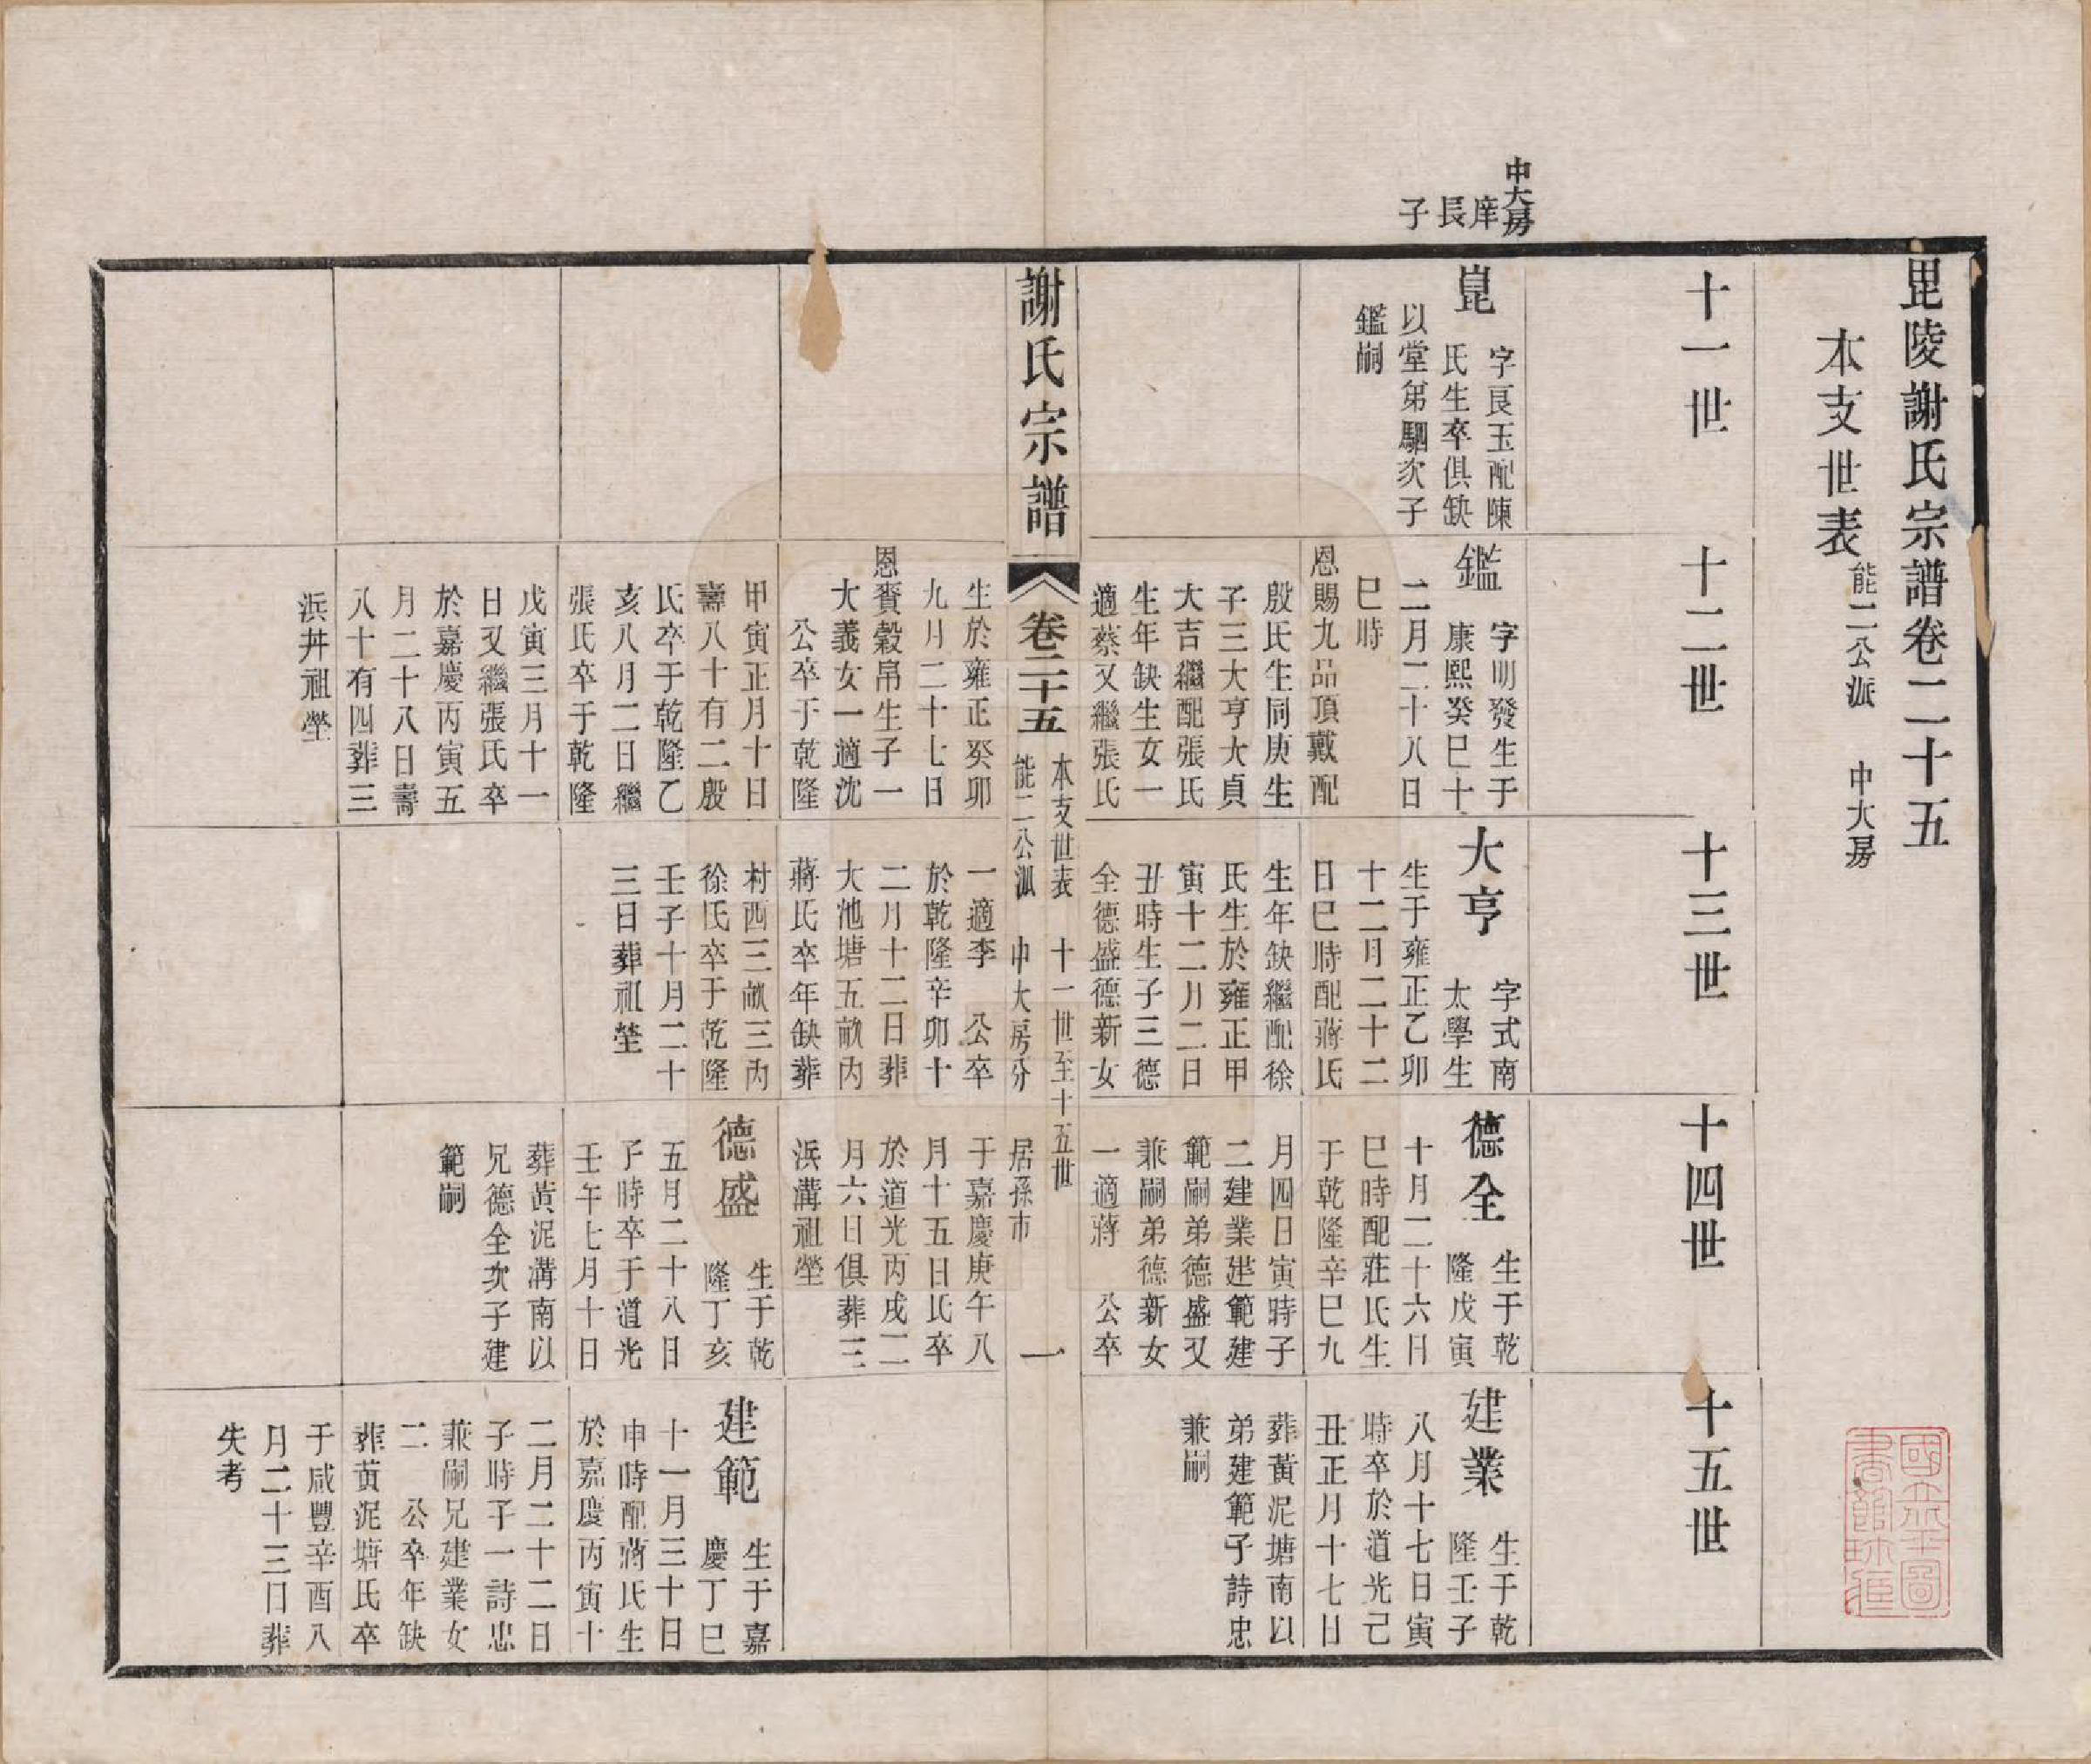 毘陵謝氏宗譜卷二十五
本支世表
能二公派 中大房
十一世
十二世
十三世
十四世
十五世
中大房
庠長子
崑
字艮玉配陳
氏生卒俱缺
以堂弟騆次子
鑑嗣
鑑
字明發生于
康熙癸巳十
二月二十八日
巳時
恩賜九品頂戴配
殷氏生同庚生
子三大亨大貞
大吉繼配張氏
生年缺生女一
適蔡又繼張氏
生於雍正癸卯
九月二十七日
恩賚穀帛生子一
大義女一適沈
公卒于乾隆
甲寅正月十日
壽八十有二殷
氏卒于乾隆乙
亥八月二日繼
張氏卒于乾隆
戊寅三月十一
日又繼張氏卒
於嘉慶丙寅五
月二十八日壽
八十有四葬三
浜井祖塋
大亨
字式南
太學生
生于雍正乙卯
十二月二十二
日巳時配蔣氏
生年缺繼配徐
氏生於雍正甲
寅十二月二日
丑時生子三德
全德盛德新女
一適李 公卒
於乾隆辛卯十
二月十二日葬
大池塘五畝內
蔣氏卒年缺葬
村西三畝三內
徐氏卒于乾隆
壬子十月二十
三日葬祖塋
德全
生于乾
隆戊寅
十月二十六日
巳時配莊氏生
于乾隆辛巳九
月四日寅時子
二建業建範建
範嗣弟德盛又
兼嗣弟德新女
一適蔣 公卒
于嘉慶庚午八
月十五日氏卒
於道光丙戌二
月六日俱葬三
浜溝祖塋
德盛
生于乾
隆丁亥
五月二十八日
子時卒于道光
壬午七月十日
葬黃泥溝南以
兄德全次子建
範嗣
建業
生于乾
隆壬子
八月十七日寅
時卒於道光己
丑正月十七日
葬黃泥塘南以
弟建範子詩忠
兼嗣
建範
生于嘉
慶丁巳
十一月三十日
申時配蔣氏生
於嘉慶丙寅十
二月二十二日
子時子一詩忠
兼嗣兄建業女
二 公卒年缺
葬黃泥塘氏卒
于咸豐辛酉八
月二十三日葬
失考
謝氏宗譜
卷二十五
本支世表 十一世至十五世
能二公派 中大房分 居孫市
一
國立北平圖
書館珍藏